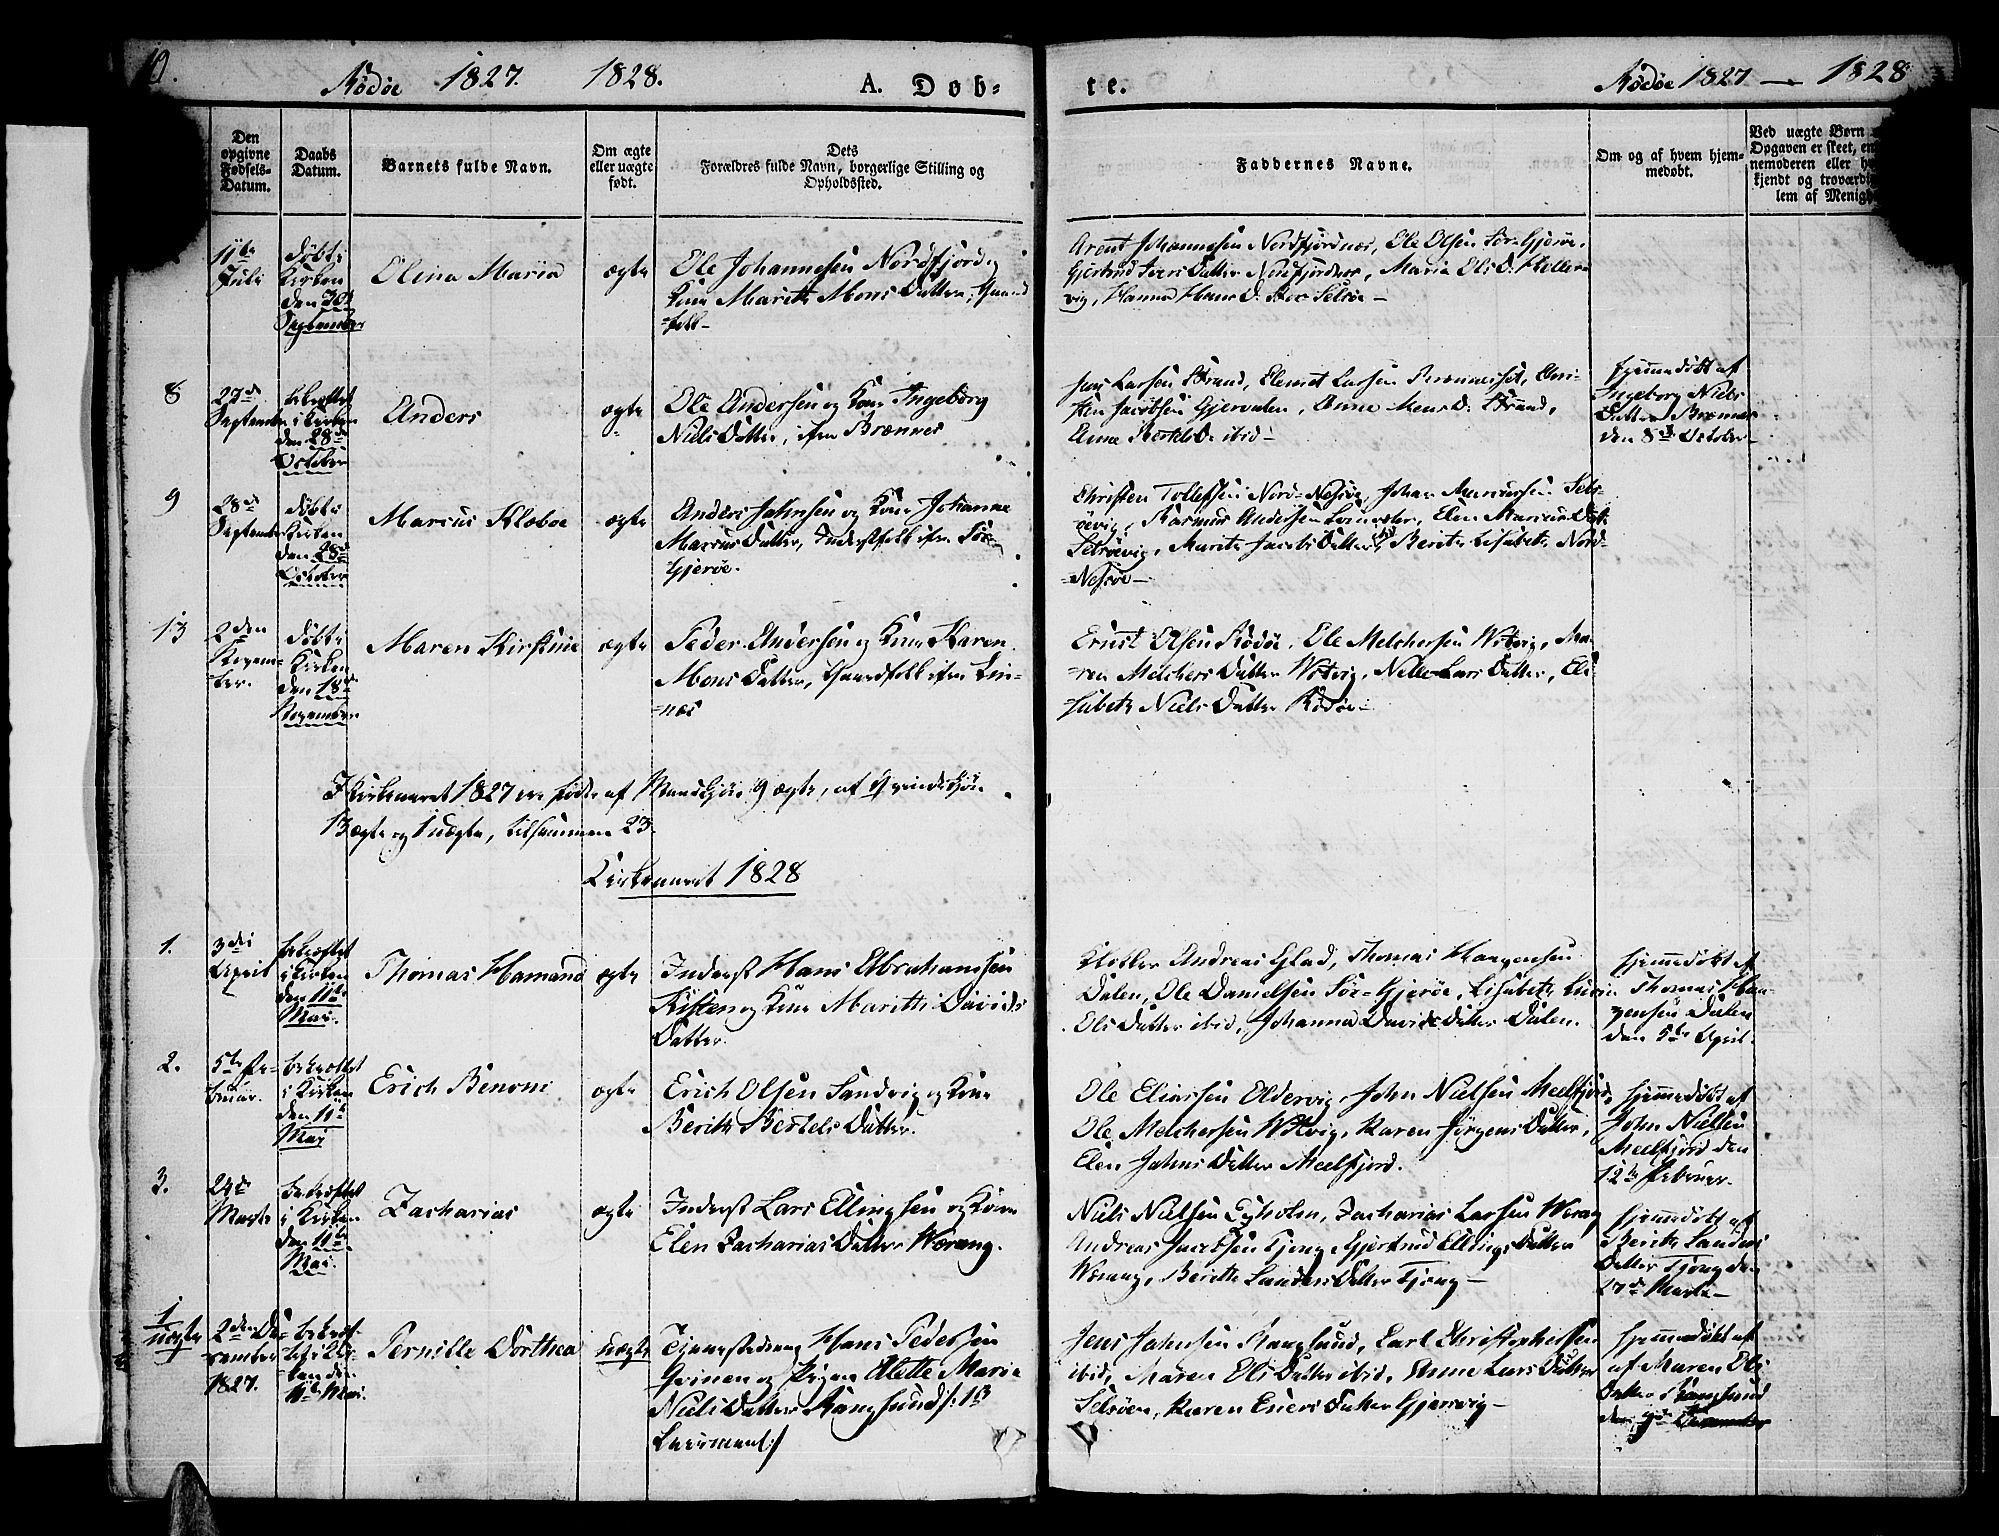 10.
Rødøe 1827. 1828.
A. Døb-
te.
Rødøe 1827 — 1828
Den opgivne Fødsels-Datum.
Daabs Datum.
Barnets fulde Navn.
Om ægte eller uægte født.
Dets Forældres fulde Navn, borgerlige Stilling og Opholdssted.
Faddernes Navne.
Om og af hvem hjem-
medøbt.
Ved uægte Børn
Opgaven er skeet, en
nemoderen eller
kjendt og troværdi
lem af Menigh
11te
Juli
døbt i
Kirken
den 30te
September
Elina Maria
ægte
Ole Johannesen Nordfjord og
Kone Marith Mons Datter, Gaard
=folk
Arent Johannesen Nordfjordnæs, Ole Olsen Sør-Gjerøe,
Gjertrud Ivers Datter Nordfjordnæs, Maria Ols D.
vig, Hanna Hans D. Selsøe—
8
27de
September
bekræftet
i Kirken
den 28de
October
Anders
ægte
Ole Andersen og Kone Ingeborg
Niels Datter, ifra Brænnes
Jens Larsen Strand, Larsen
Jacobsen Gjervalen, Anne D. Strand,
Anne ibid—
hjemmedøbt af
Ingeborg Niels
Datter Brænnes
den 8de October—
9
28de
September
døbt i
Kirken
den 28de
October
Marcus Klæboe
ægte
Anders Johnsen og Kone Johanna
Marcus Datter, Inderstfolk ifra Sør-
Gjerøe.
Christen Tollefsen Nord-Nesøe, Johan Sels-
øevig, Rasmus Andersen Elen Marcus Datt.
Selsøevig, Marith Jacobs Datter ibid, Berith Lisabeth Nord-
=Nesøe—
13
2den
Novem-
ber.
døbt i
Kirken
den 18de
November
Maren Kirstine
ægte
Peder Andersen og Kone Karen
Mons Datter, Gaardfolk ifra
=næs
Ernst Olsen Rødøe, Ole Melchersen Wotvig, Ma-
=ren Melchers Datter Wotvig, Nille Lars Datter, Eli-
=sabeth Niels Datter Rødøe—
I Kirkeaaret 1827 ere fødte af Mandkjøn 9 ægte, af Qvindekjøn
13 ægte og 1 uægte, tilsammen 23.
Kirkeaaret 1828
1.
3die
April
bekræftet
i Kirken
den 11te
Mai.
Thomas Hamand
ægte
Inderst Hans Abrahamsen
Kisten og Kone Marith Davids
Datter.
Klokker Andreas Glad, Thomas Haagensen
Dalen, Ole Danielsen Sør-Gjerøe, Lisabeth
Ols Datter ibid, Johanna Davids Datter Dalen.
hjemmedøbt af
Thomas Haa-
gensen Dalen
den 5te April.
2.
5te Fe-
bruar.
bekræftet
i Kirken
den 11te
Mai
Erich Benoni
ægte
Erich Olsen Sandvig og Kone
Berith Bertels Datter.
Ole Eliassen Oldervig, John Nielsen Meelfjord,
Ole Melchersen Wotvig, Karen Jørgens Datter,
Elen Johns Datter Meelfjord.
hjemmedøbt af
John Nielsen
Meelfjord den
12te Februar.
3.
24de
Marts
bekræftet
i Kirken
den 11te
Mai.
Zacharias
ægte
Inderst Lars Ellingsen og Kone
Elen Zacharias Datter Wærang.
Niels Nielsen Eyholm, Zacharias Larsen Werang
Andreas Jacobsen Tjong, Gjertrud Ellings Datter
Werang, Berith Sanders Datter Tjong—
hjemmedøbt af
Berith Sanders
Datter Tjong den
27de Marts—
1
uægte
2den De-
cember
1827.
bekræf-
tet i Kir-
ken den
11te Mai.
Pernille Dorthea
uægte
Tjenestedreng Hans Pedersen
Grinen og Pigen Alette Maria
Niels Datter Rangsund /: 1ste
Leiermaal :/
Jens Johnsen Rangsund, Carl Christophersen
ibid, Maren Ols Datter ibid, Anne Lars Datter
Selsøen, Karen Eners Datter Gjersvig—
hjemmedøbt af
af Maren Ols
Datter Rangsund
den 9de December